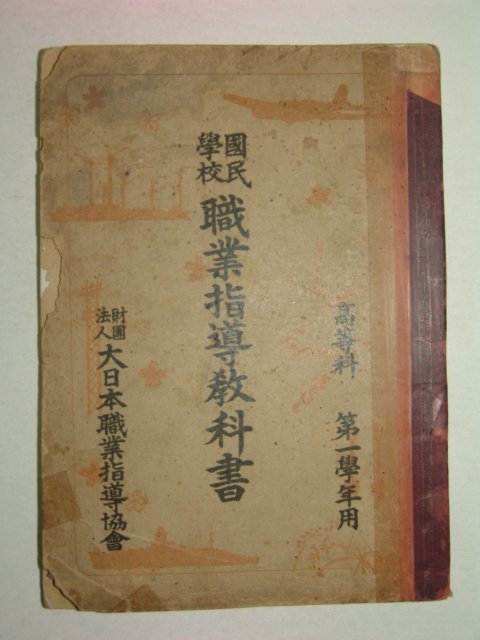 高等科 第一學年用
國民學校 職業指導教科書
財團法人 大日本職業指導協會